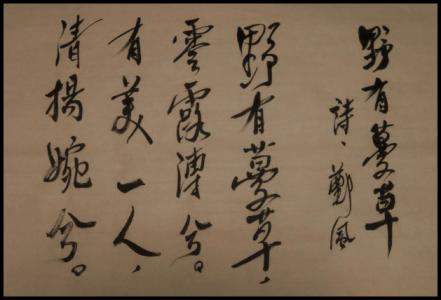 野有蔓草
詩、鄭風
野有蔓草，
零露漙兮。
有美一人，
清揚婉兮。